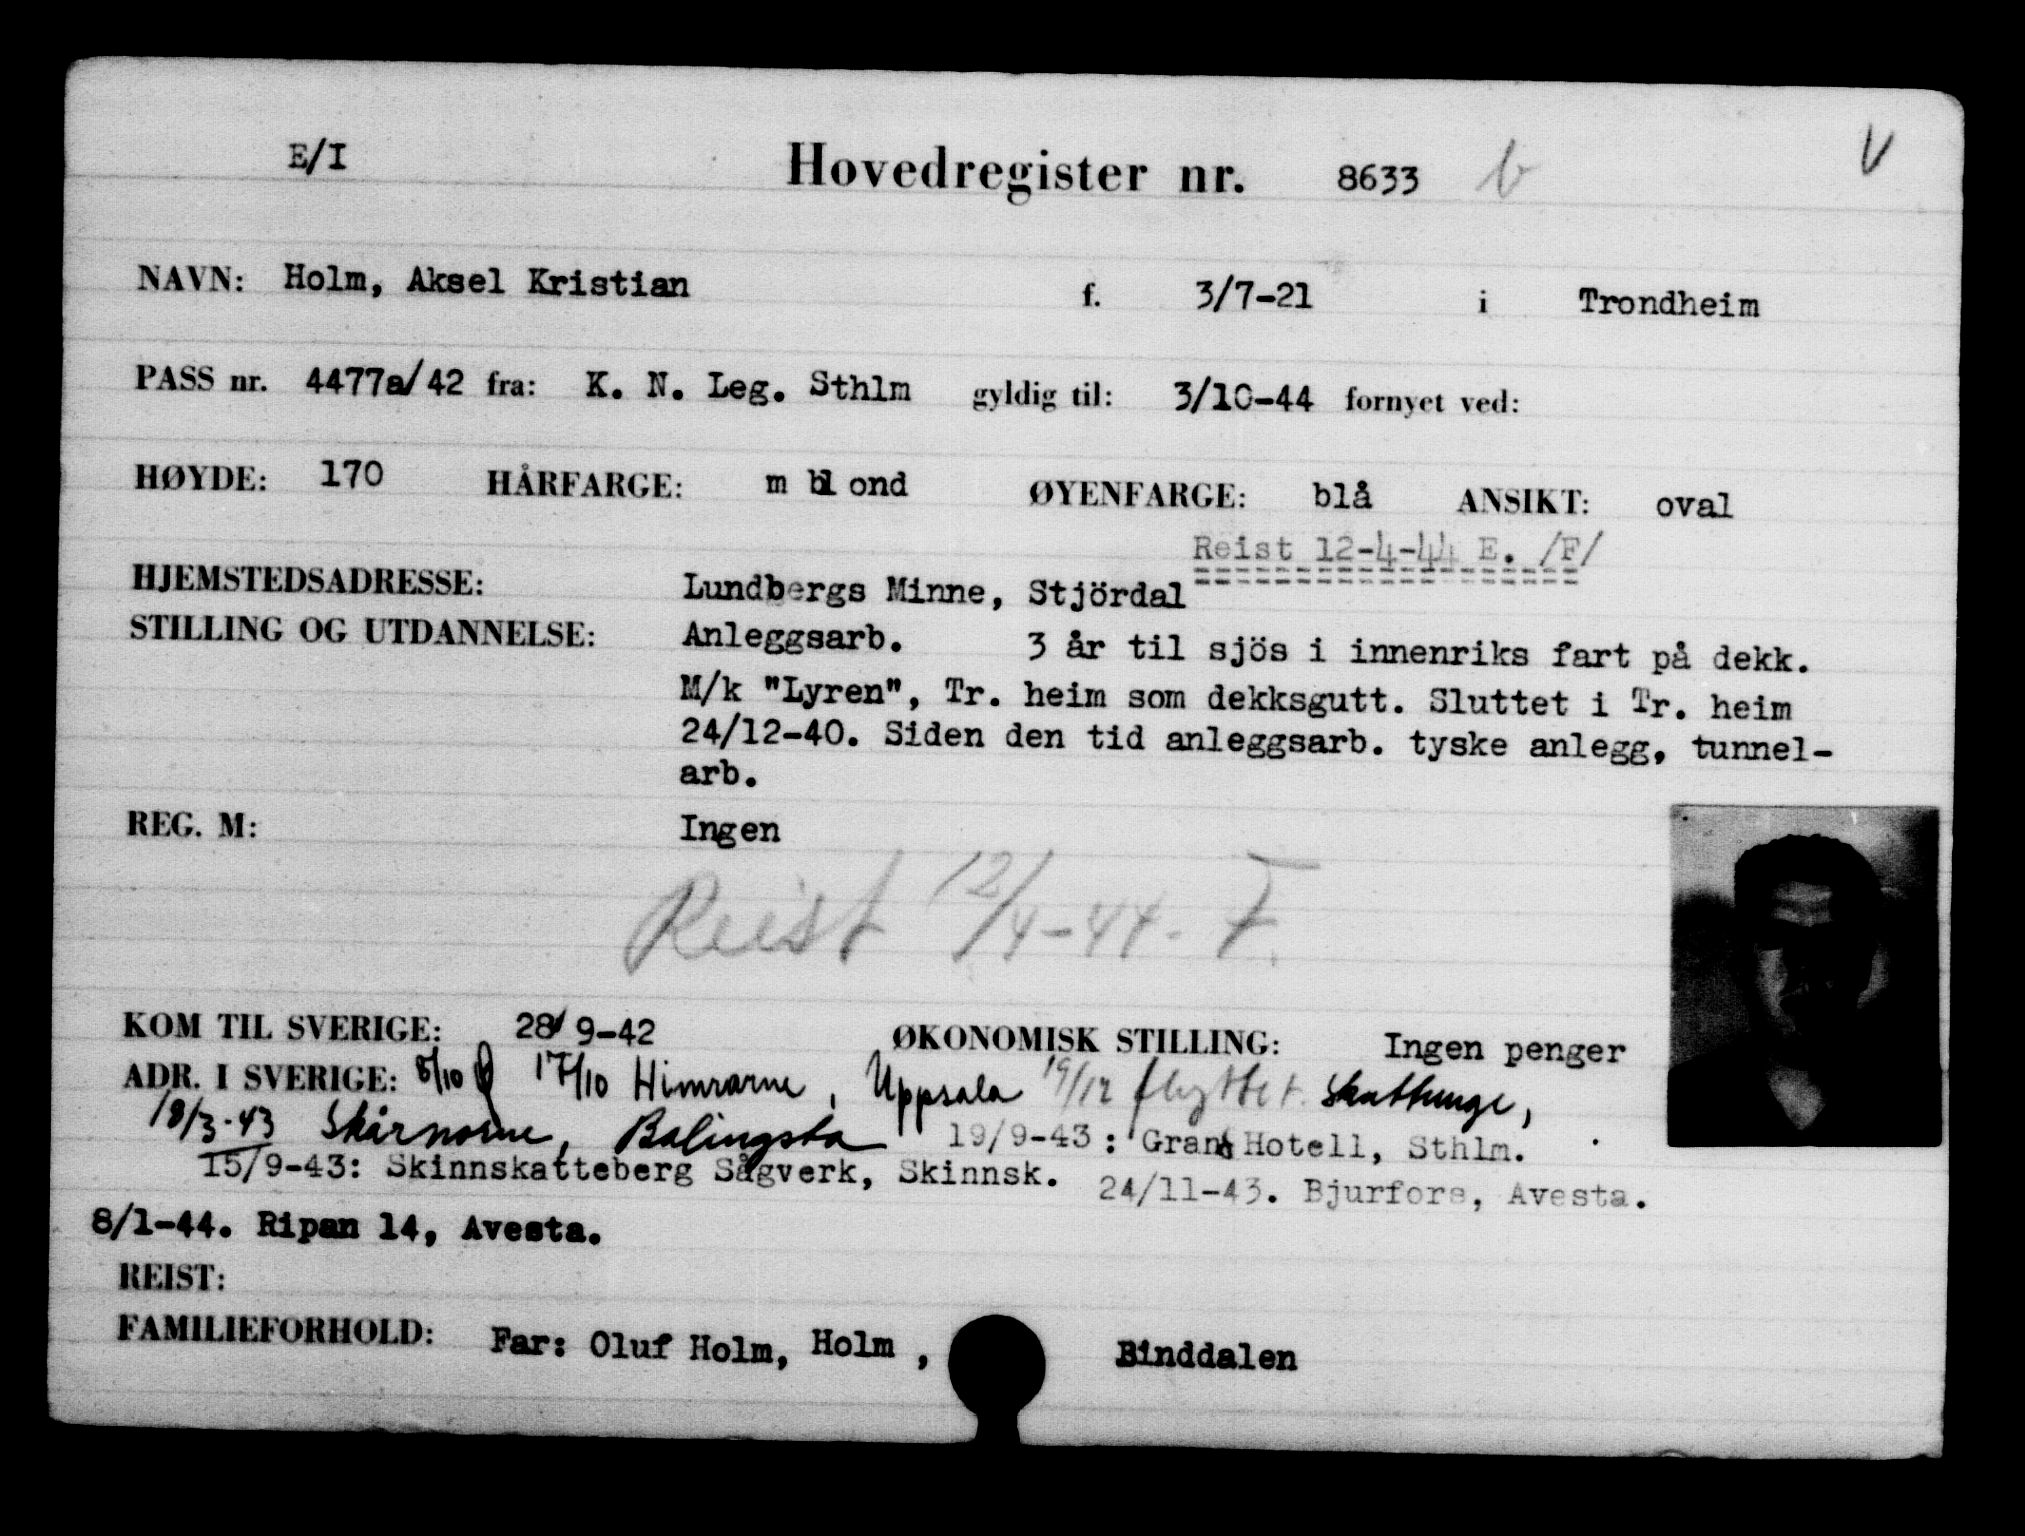 E/I Hovedregister nr. 8633 b V
NAVN: Holm, Aksel Kristian f. 3/7-21 i Trondheim
PASS nr. 4477a/42 fra: K. N. Leg. Sthlm gyldig til: 3/10-44 fornyet ved:
HØYDE: 170 HÅRFARGE: m blond ØYENFARGE: blå ANSIKT: oval
Reist 12-4-44 E. /F/
HJEMSTEDSADRESSE: Lundbergs Minne, Stjördal
STILLING OG UTDANNELSE: Anleggsarb. 3 år til sjös i innenriks fart på dekk.
M/k "Lyren", Tr. heim som dekksgutt. Sluttet i Tr. heim
24/12-40. Siden den tid anleggsarb. tyske anlegg, tunnel-
arb.
REG. M: Ingen
Reist 12/4-44. F.
KOM TIL SVERIGE: 28/9-42 ØKONOMISK STILLING: Ingen penger
ADR. I SVERIGE: 8/10 Ö 17/10 Himrarne, Uppsala 19/12 flyttet. Skattunge,
18/3-43 Skårnorne, Balingsta 19/9-43: Grand Hotell, Sthlm.
15/9-43: Skinnskatteberg Sågverk, Skinnsk. 24/11-43. Bjurfors, Avesta.
8/1-44. Ripan 14, Avesta.
REIST:
FAMILIEFORHOLD: Far: Oluf Holm, Holm , Binddalen